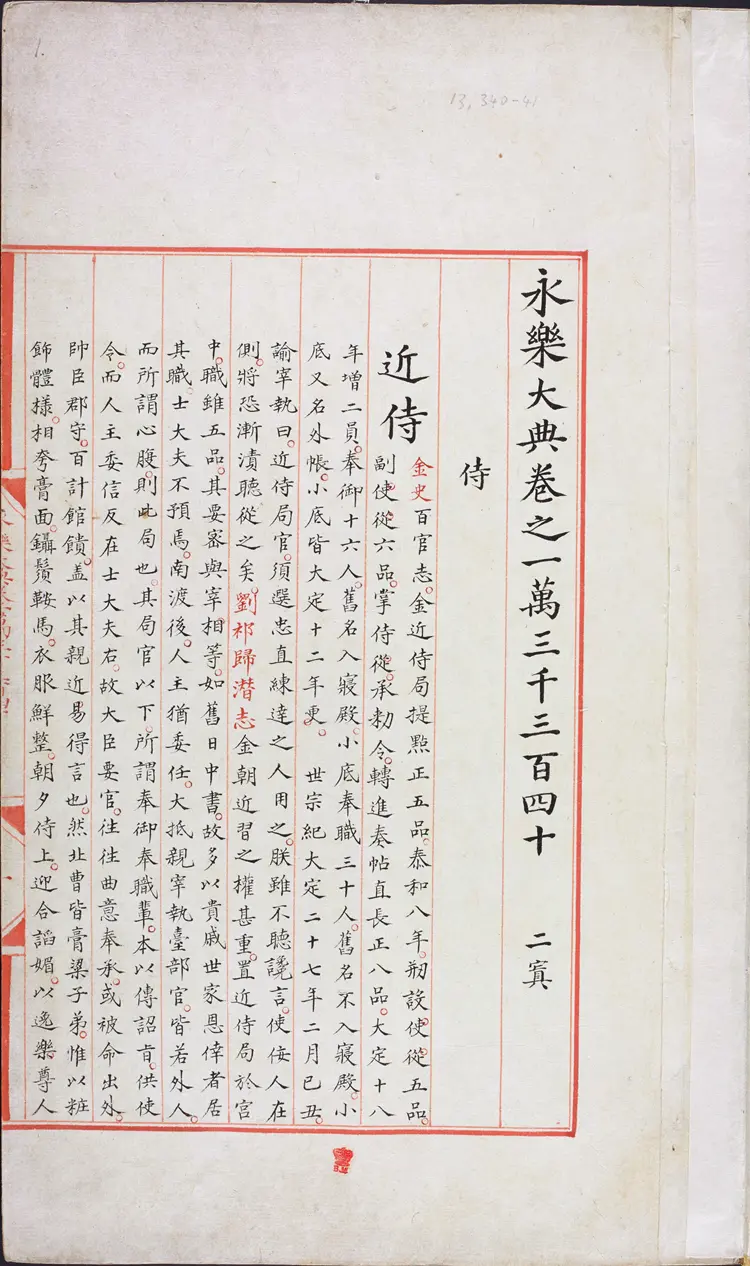 1.
13,340-41
永樂大典卷之一萬三千三百四十 二寘
侍
近侍
金史百官志。金近侍局提點正五品。泰和八年。剏設使從五品。
副使從六品。掌侍從。承勑令。轉進奏帖直長正八品。大定十八
年增二員。奉御十六人。舊名入寢殿。小底奉職三十人。舊名不入寢殿。小
底又名外帳。小底皆大定十二年更。 世宗紀大定二十七年二月己丑。
諭宰執曰。近侍局官。須選忠直練達之人用之。朕雖不聽讒言。使佞人在
側。將恐漸漬聽從之矣。劉祁歸潛志金朝近習之權甚重。置近侍局於宮
中。職雖五品。其要密與宰相等。如舊日中書。故多以貴戚世家恩倖者居
其職。士大夫不預焉。南渡後。人主猶委任。大抵親宰執臺部官。皆若外人。
而所謂心腹。則此局也。其局官以下。所謂奉御奉職輩。本以傳詔旨。供使
令。而人主委信反在士大夫右。故大臣要官。往往曲意奉承。或被命出外。
帥臣郡守。百計館饋。盖以其親近易得言也。然此曹皆膏粱子弟。惟以粧
飾體樣。相夸膏面。鑷鬚鞍馬。衣服鮮整。朝夕侍上。迎合諂媚。以逸樂導人